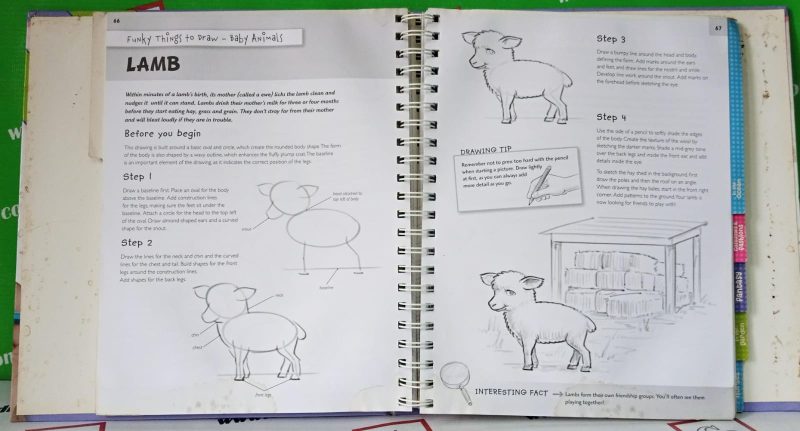 66
Funky Things to Draw – Baby Animals
LAMB
Within minutes of a lamb's birth, its mother (called a ewe) licks the lamb clean and
nudges it until it can stand. Lambs drink their mother's milk for three or four months
before they start eating hay, grass and grain. They don't stray far from their mother
and will bleat loudly if they are in trouble.
Before you begin
This drawing is built around a basic oval and circle, which create the rounded body shape. The form
of the body is also shaped by a wavy outline, which enhances the fluffy, plump coat. The baseline
is an important element of the drawing, as it indicates the correct position of the legs.
Step 1
Draw a baseline first. Place an oval for the body
above the baseline. Add construction lines
for the legs, making sure the feet sit under the
baseline. Attach a circle for the head to the top left
of the oval. Draw almond shaped ears and a curved
shape for the snout.
head attached to
top left of body
snout
baseline
Step 2
Draw the lines for the neck and chin and the curved
lines for the chest and tail. Build shapes for the front
legs around the construction lines.
Add shapes for the back legs.
neck
chin
chest
front legs
67
Step 3
Draw a bumpy line around the head and body,
defining the form. Add marks around the ears
and feet, and draw lines for the nostril and smile.
Develop the work around the snout. Add marks on
the forehead before sketching the eye.
Step 4
Use the side of a pencil to softly shade the edges
of the body. Create the texture of the wool by
sketching the darker marks. Shade a mid-grey tone
over the back legs and inside the front ear and add
details inside the eye.
To sketch the hay shed in the background, first
draw the poles and then the roof on an angle.
When drawing the hay bales, start in the front right
corner. Add patterns to the ground. Your lamb is
now looking for friends to play with!
DRAWING TIP
Remember not to press too hard with the pencil
when starting a picture. Draw lightly
at first, as you can always add
more detail as you go.
INTERESTING FACT
Lambs form their own friendship groups. You'll often see them
playing together!
ocean
fashions
fantasy
garden